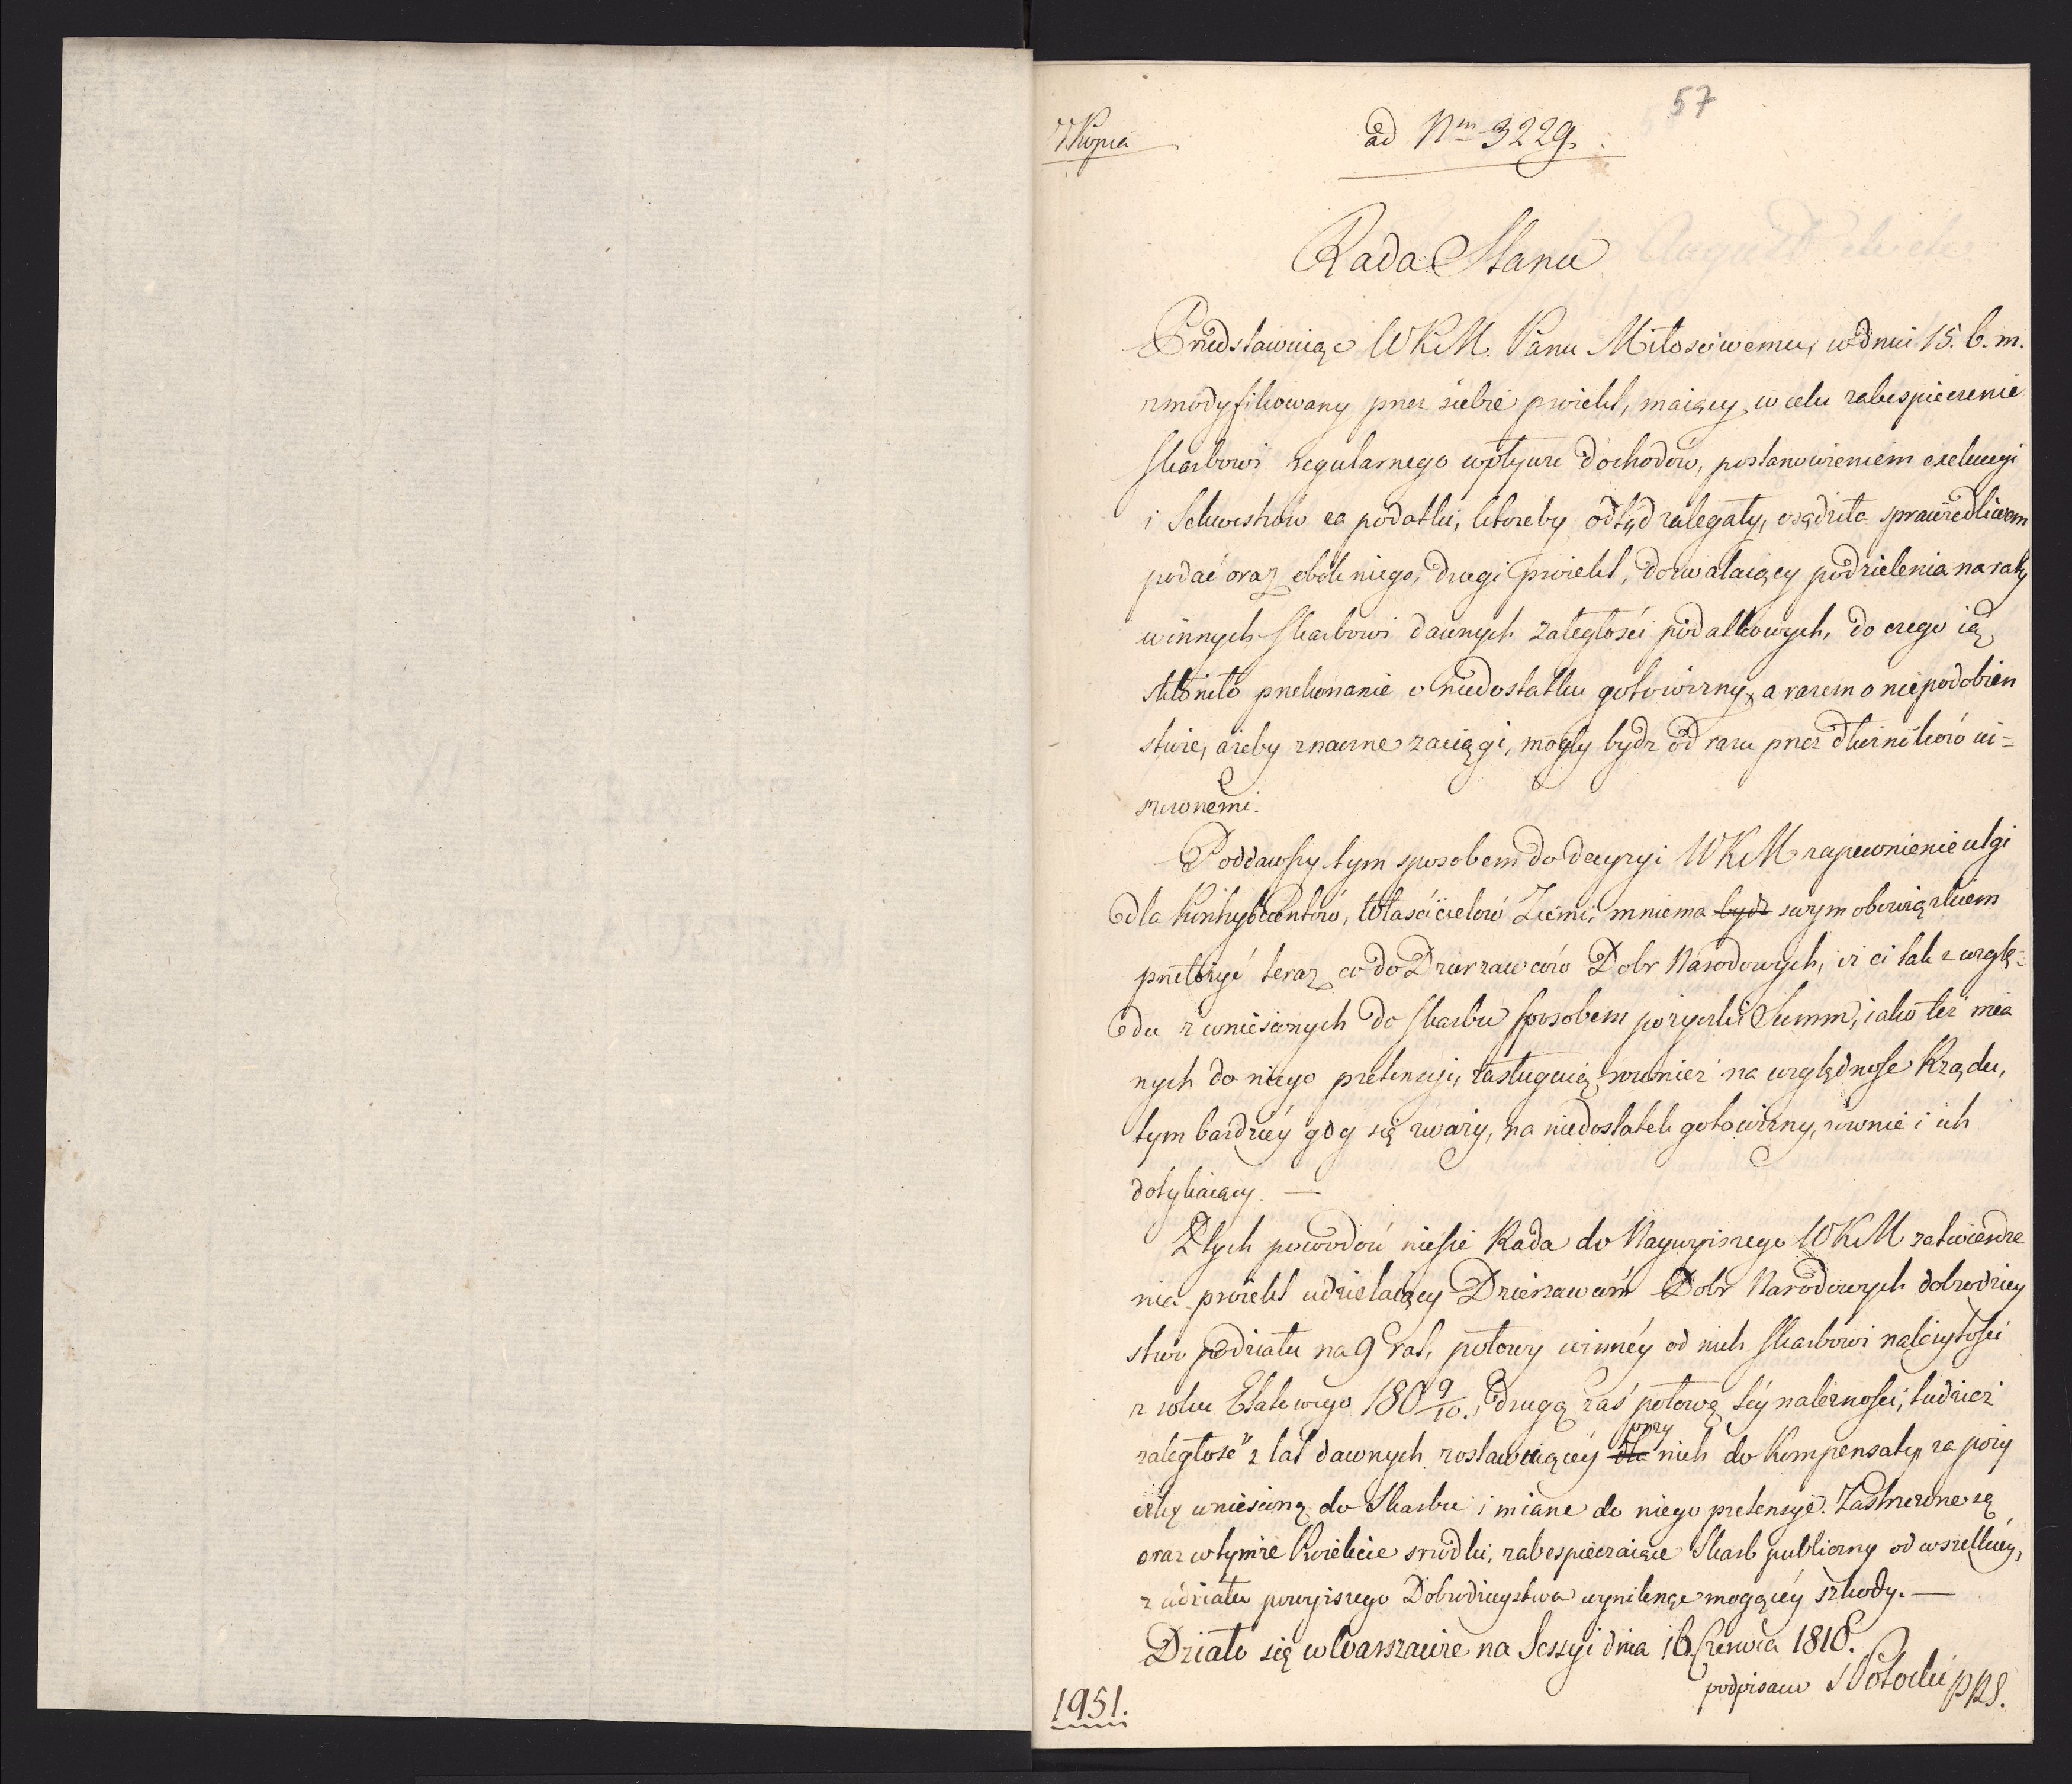 57
Kopia
ad Nm 3229.
Rada Stanu
Przedstawuiąc WKM. Panu Miłosciwemu, w dniu 15. b. m.
zmodyfikowany przez siebie proiekt, maiący w celu zabespieczenie
skarbowi regularnego wpływu dochodów, postanowieniem exekucyi
i Sekwestrów za podatki, któreby odtąd zalegały, osądziła sprawiedliwem
podać oraz obok niego, drugi proiekt, dozwalaiący podzielenia na raty
winnych skarbowi dawnych zaległości podatkowych, do czego ią
skłoniło przekonanie o niedostatku gotowizny, a razem o niepodobień
stwie, ażeby znaczne zaciągi, mogły bydz od razu przez dłużników ui=
szczonemi.
Poddawszy tym sposobem do decyzyi WKM zapewnienie ulgi
dla kontrybuentów, Właścicielów Ziemi, mniema bydź swym obowiązkiem
przełożyć teraz co do Dzierzawców Dobr Narodowych, iż ci tak z wzglę=
du z wniesionych do skarbu sposobem pożyczki Summ, iako też mia
nych do niego pretensyi, zasługuią rownież na względnosc Rządu,
tym bardziéy gdy się zważy, na niedostatek gotowizny, rownie i ich
dotykaiący. —
Z tych powodów niesie Rada do Naywyższego WKM zatwierdze
nia proiekt udzielaiący Dzierzawcom Dobr Narodowych dobrodziey
stwo podziału na 9 rat, połowy winnéy od nich skarbowi należytości
z roku Etatowego 180 9/10., drugą zaś połowę téy należności, tudzież
zaległosć z lat dawnych zostawuiącéy dla przy nich do kompensaty, za poży
czkę wniesioną do Skarbu i miane do niego pretensye. Zastrzeżone są
oraz w tymże Proiekcie srzodki, zabespieczaiące Skarb publiczny od wszelkiéy,
z udziału powyższego Dobrodzieystwa wyniknąć mogącéy szkody. —
Działo się w Warszawie na Sessyi dnia 16 Czerwca 1810.
podpisano S Potocki PRS.
1951.